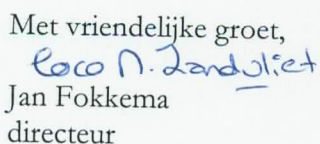 Met vriendelijke groet,
Coco N. Zandvliet
Jan Fokkema
directeur